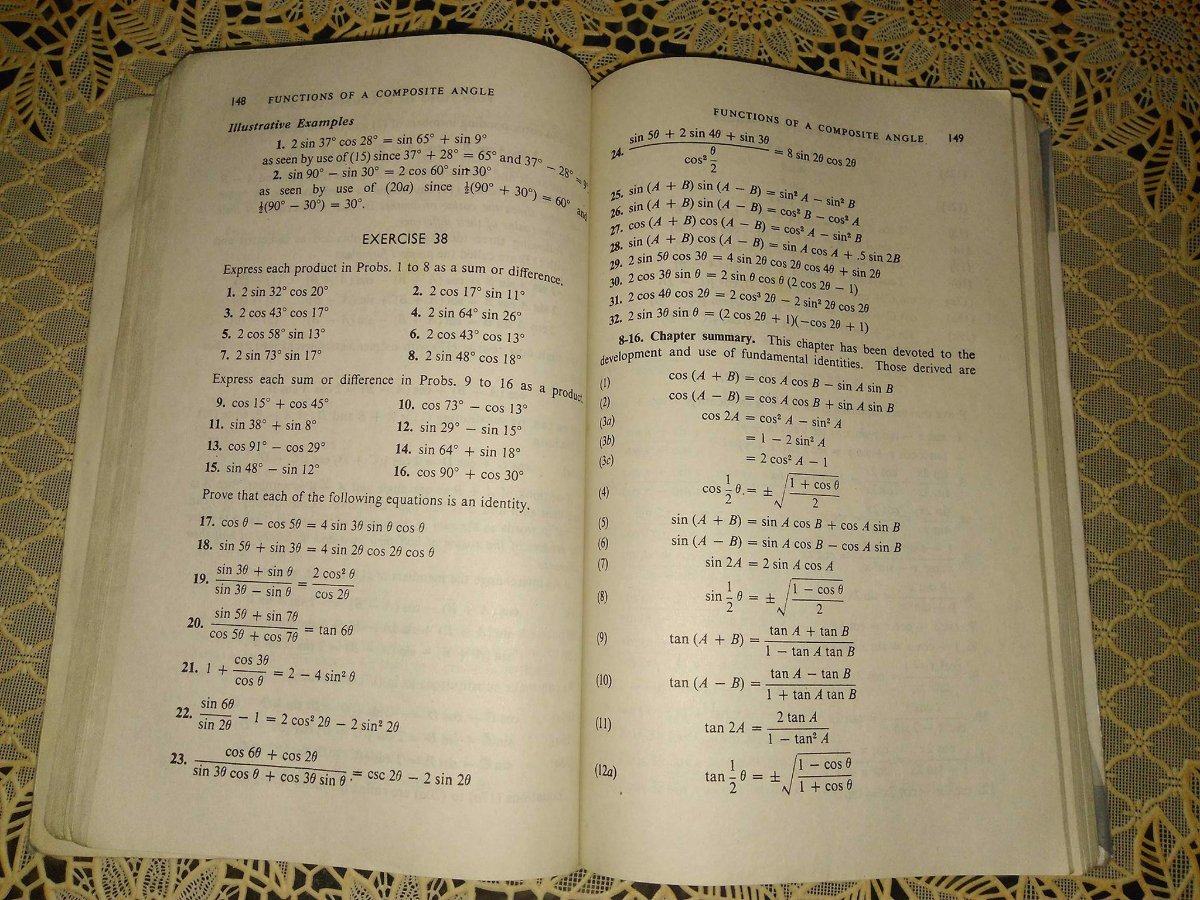 148 FUNCTIONS OF A COMPOSITE ANGLE
Illustrative Examples
1. 2 sin 37° cos 28° = sin 65° + sin 9°
as seen by use of (15) since 37° + 28° = 65° and 37° − 28° = 9°
2. sin 90° − sin 30° = 2 cos 60° sin 30°
as seen by use of (20a) since ½(90° + 30°) = 60° and
½(90° − 30°) = 30°.
EXERCISE 38
Express each product in Probs. 1 to 8 as a sum or difference.
1. 2 sin 32° cos 20° 2. 2 cos 17° sin 11°
3. 2 cos 43° cos 17° 4. 2 sin 64° sin 26°
5. 2 cos 58° sin 13° 6. 2 cos 43° cos 13°
7. 2 sin 73° sin 17° 8. 2 sin 48° cos 18°
Express each sum or difference in Probs. 9 to 16 as a product.
9. cos 15° + cos 45° 10. cos 73° − cos 13°
11. sin 38° + sin 8° 12. sin 29° − sin 15°
13. cos 91° − cos 29° 14. sin 64° + sin 18°
15. sin 48° − sin 12° 16. cos 90° + cos 30°
Prove that each of the following equations is an identity.
17. cos θ − cos 5θ = 4 sin 3θ sin θ cos θ
18. sin 5θ + sin 3θ = 4 sin 2θ cos 2θ cos θ
19. (sin 3θ + sin θ)/(sin 3θ − sin θ) = (2 cos² θ)/(cos 2θ)
20. (sin 5θ + sin 7θ)/(cos 5θ + cos 7θ) = tan 6θ
21. 1 + (cos 3θ)/(cos θ) = 2 − 4 sin² θ
22. (sin 6θ)/(sin 2θ) − 1 = 2 cos² 2θ − 2 sin² 2θ
23. (cos 6θ + cos 2θ)/(sin 3θ cos θ + cos 3θ sin θ) = csc 2θ − 2 sin 2θ
FUNCTIONS OF A COMPOSITE ANGLE 149
24. (sin 5θ + 2 sin 4θ + sin 3θ)/(cos² θ/2) = 8 sin 2θ cos 2θ
25. sin (A + B) sin (A − B) = sin² A − sin² B
26. sin (A + B) sin (A − B) = cos² B − cos² A
27. cos (A + B) cos (A − B) = cos² A − sin² B
28. sin (A + B) cos (A − B) = sin A cos A + .5 sin 2B
29. 2 sin 5θ cos 3θ = 4 sin 2θ cos 2θ cos 4θ + sin 2θ
30. 2 cos 3θ sin θ = 2 sin θ cos θ (2 cos 2θ − 1)
31. 2 cos 4θ cos 2θ = 2 cos³ 2θ − 2 sin² 2θ cos 2θ
32. 2 sin 3θ sin θ = (2 cos 2θ + 1)(−cos 2θ + 1)
8-16. Chapter summary. This chapter has been devoted to the
development and use of fundamental identities. Those derived are
(1) cos (A + B) = cos A cos B − sin A sin B
(2) cos (A − B) = cos A cos B + sin A sin B
(3a) cos 2A = cos² A − sin² A
(3b) = 1 − 2 sin² A
(3c) = 2 cos² A − 1
(4) cos ½ θ = ± √((1 + cos θ)/2)
(5) sin (A + B) = sin A cos B + cos A sin B
(6) sin (A − B) = sin A cos B − cos A sin B
(7) sin 2A = 2 sin A cos A
(8) sin ½ θ = ± √((1 − cos θ)/2)
(9) tan (A + B) = (tan A + tan B)/(1 − tan A tan B)
(10) tan (A − B) = (tan A − tan B)/(1 + tan A tan B)
(11) tan 2A = (2 tan A)/(1 − tan² A)
(12a) tan ½ θ = ± √((1 − cos θ)/(1 + cos θ))